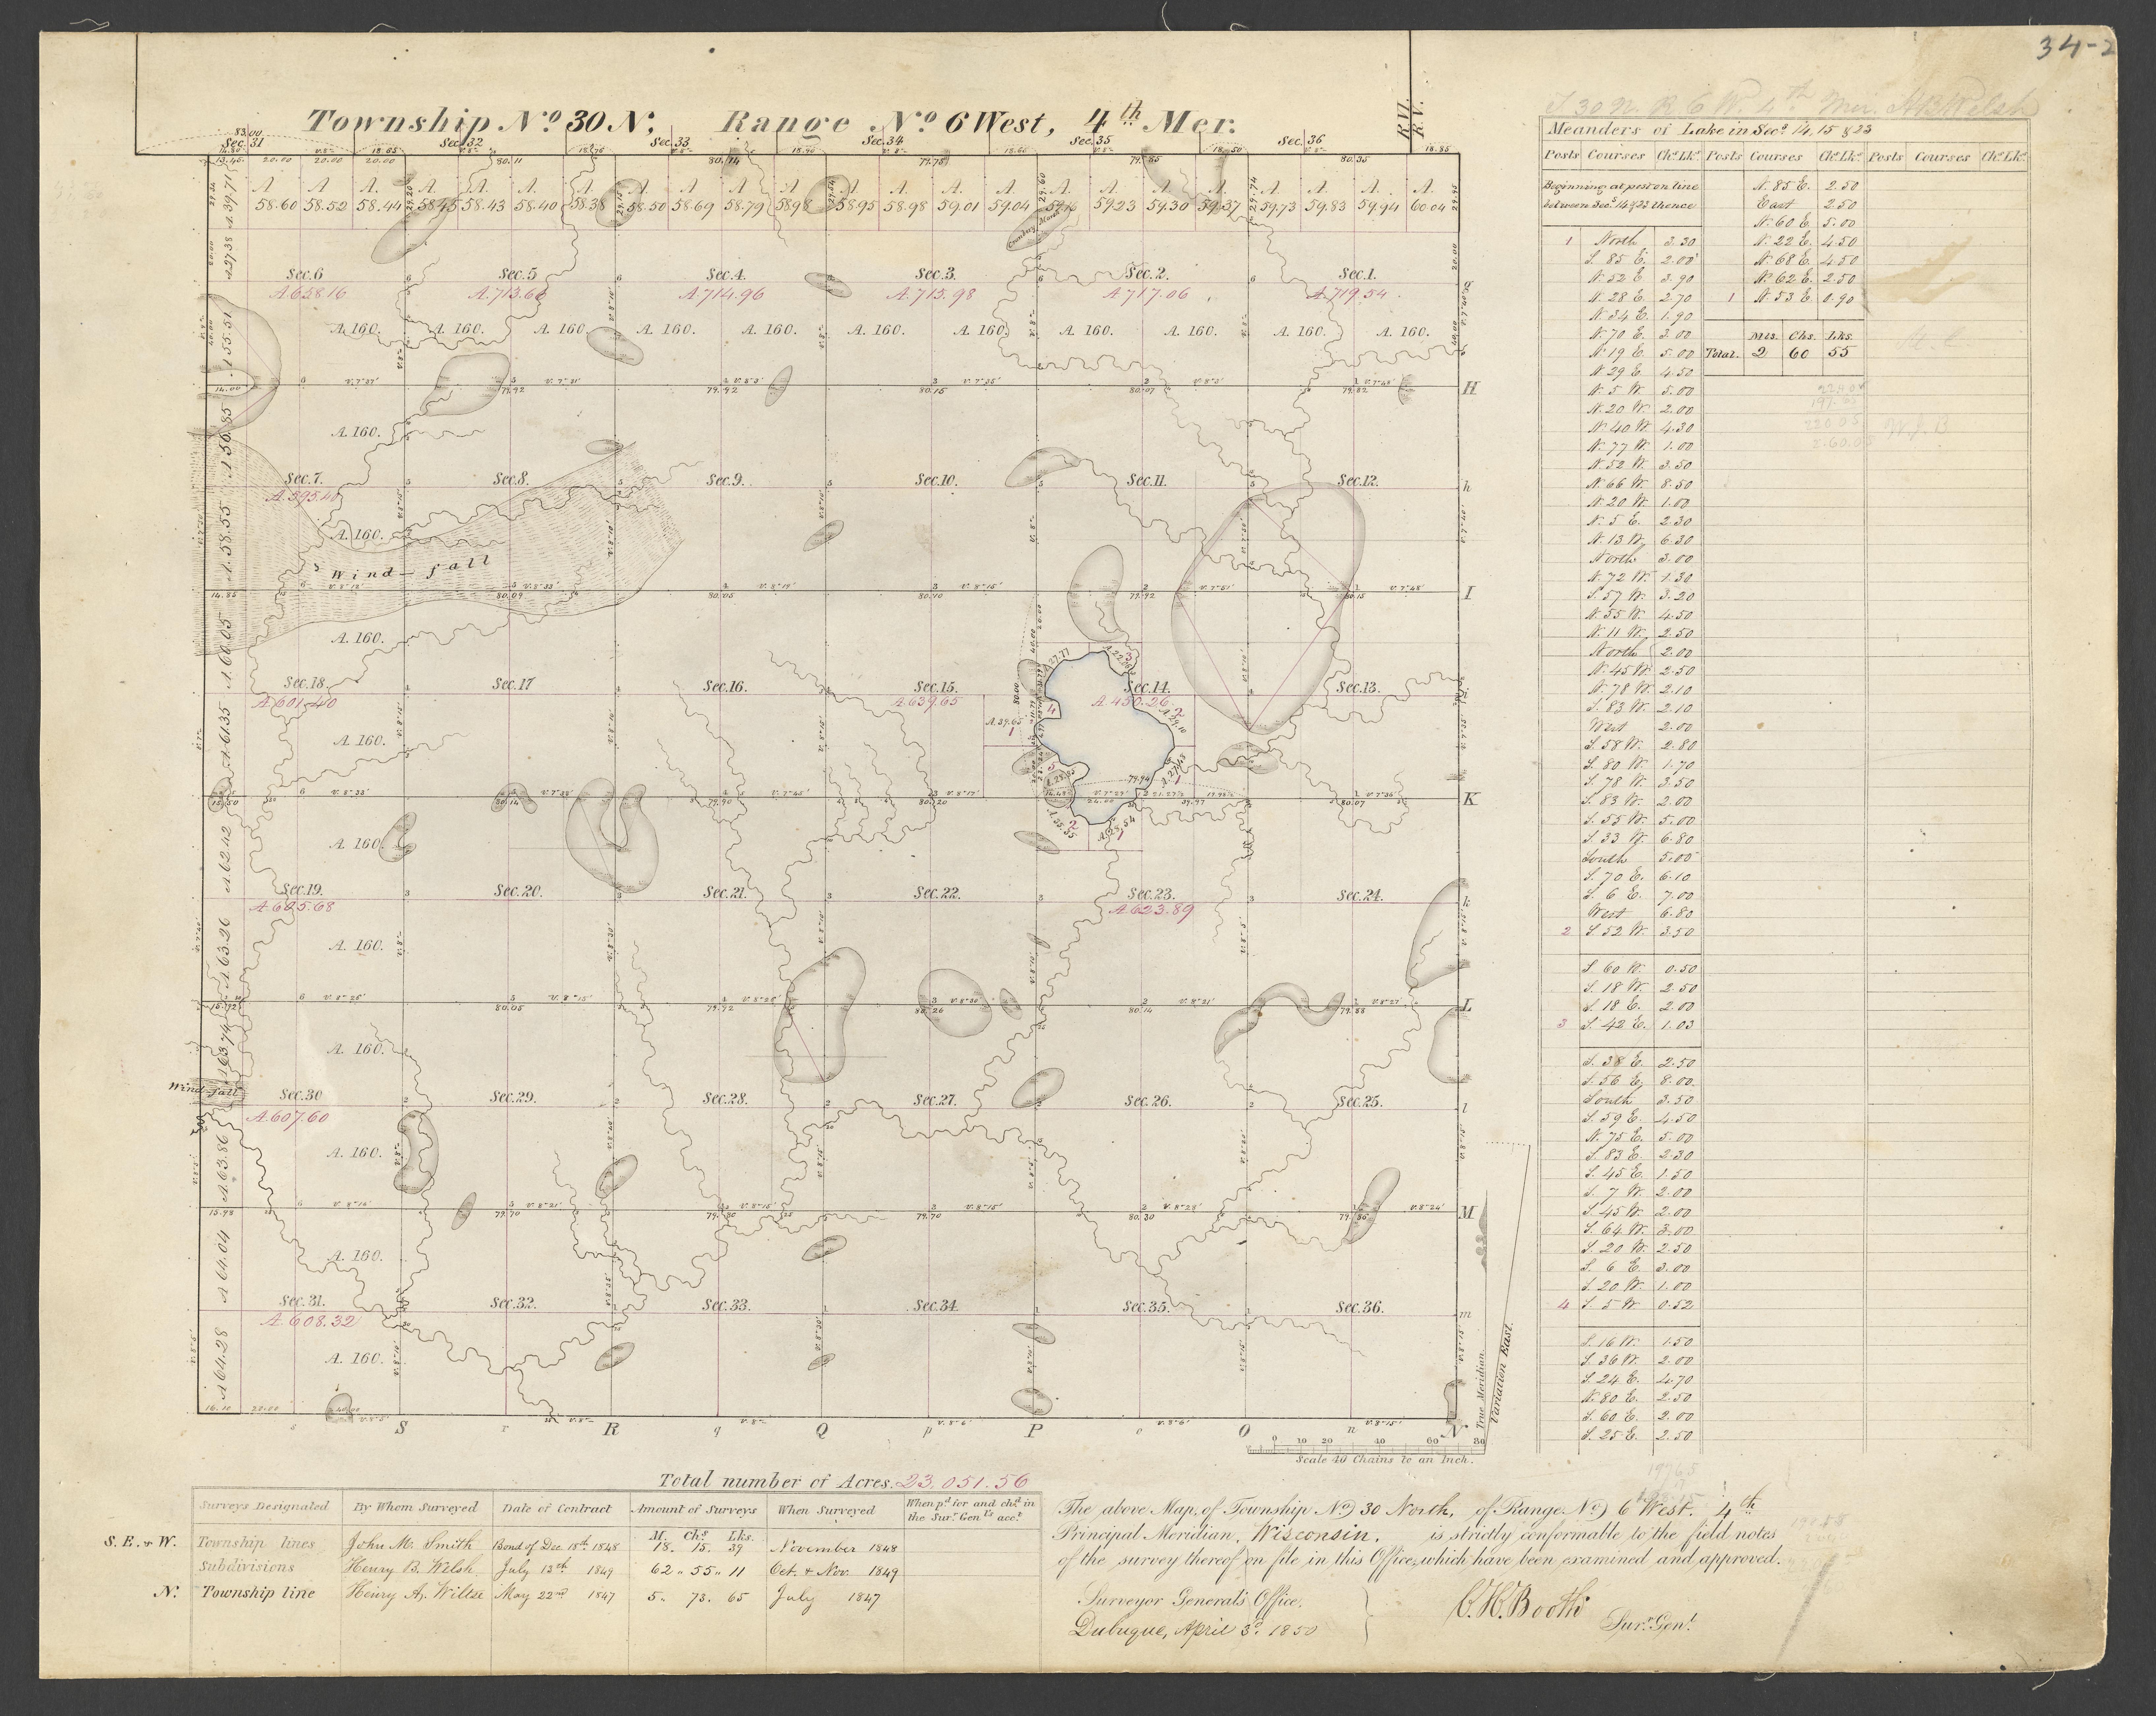 34-2
Township No. 30 N, Range No. 6 West, 4th Mer.
R.VI. R.V.
T. 30 N. R 6 W. 4th Mer. H B Welsh
83.00
Sec. 31 Sec. 32 Sec. 33 Sec. 34 Sec. 35 Sec. 36
13.45 20.00 20.00 20.00 80.11 80.14 79.78 79.85 80.35
A A A. A. A. A. A. A. A. A A A. A. A. A. A. A. A. A. A. A. A. A.
58.60 58.52 58.44 58.45 58.43 58.40 58.38 58.50 58.69 58.79 58.98 58.95 58.98 59.01 59.04 59.16 59.23 59.30 59.37 59.73 59.83 59.94 60.04
Cranberry Marsh
Sec. 6 Sec. 5 Sec. 4. Sec. 3. Sec. 2. Sec. 1.
A. 658.16 A. 713.66 A. 714.96 A. 715.98 A. 717.06 A. 719.54
A. 160. A. 160. A. 160. A. 160. A. 160. A. 160. A. 160. A. 160. A. 160. A. 160. A. 160.
14.00 79.92 79.92 80.15 80.07 79.82 H
A. 160.
Sec. 7. Sec. 8. Sec. 9. Sec. 10. Sec. 11. Sec. 12. h
A. 595.40
A. 160.
Wind-fall
14.85 80.09 80.05 80.10 79.92 80.15 I
A. 160.
Sec. 18. Sec. 17 Sec. 16. Sec. 15. Sec. 14. Sec. 13.
A. 601.40 A. 639.65 A. 450.26
A. 160. A. 39.65
15.50 80.14 79.90 80.20 24.00 39.97 80.07 K
A. 160.
Sec. 19. Sec. 20. Sec. 21. Sec. 22. Sec. 23. Sec. 24. k
A. 605.68 A. 623.89
A. 160.
15.72 80.05 79.72 80.26 80.14 79.88 L
A. 160.
Wind-fall
Sec. 30 Sec. 29. Sec. 28. Sec. 27. Sec. 26. Sec. 25. l
A. 607.60
A. 160.
15.98 79.70 79.80 79.70 80.30 79.86 M
A. 160.
Sec. 31. Sec. 32. Sec. 33. Sec. 34. Sec. 35. Sec. 36. m
A. 608.32
A. 160.
16.10 20.00 40.00
s S r R q Q p P o O n N
True Meridian.
Variation East.
0 10 20 40 60 80
Scale 40 Chains to an Inch.
Meanders of Lake in Secs. 14, 15 & 23
Posts Courses Chs. Lks. Posts Courses Chs. Lks. Posts Courses Chs. Lks.
Beginning at post on line
between Secs. 14 & 23 thence
1 North 3.30
S. 85 E. 2.00
N. 52 E. 3.90
N. 28 E. 2.70
N. 34 E. 1.90
N. 70 E. 3.00
N. 19 E. 5.00
N. 29 E. 4.50
N. 5 W. 5.00
N. 20 W. 2.00
N. 40 W. 4.30
N. 77 W. 1.00
N. 52 W. 3.50
N. 66 W. 8.50
N. 20 W. 1.00
N. 5 E. 2.30
N. 13 W. 6.30
North 3.00
N. 72 W. 1.30
S. 57 W. 3.20
N. 55 W. 4.50
N. 11 W. 2.50
North 2.00
N. 45 W. 2.50
N. 78 W. 2.10
S. 83 W. 2.10
West 2.00
S. 58 W. 2.80
S. 80 W. 1.70
S. 78 W. 3.50
S. 83 W. 2.00
S. 55 W. 5.00
S. 33 W. 6.80
South 5.00
S. 70 E. 6.10
S. 6 E. 7.00
West 6.80
2 S. 52 W. 3.50
S. 60 W. 0.50
S. 18 W. 2.50
S. 18 E. 2.00
3 S. 42 E. 1.03
S. 38 E. 2.50
S. 56 E. 8.00
South 3.50
S. 59 E. 4.50
N. 75 E. 5.00
S. 83 E. 2.30
S. 45 E. 1.50
S. 7 W. 2.00
S. 45 W. 2.00
S. 64 W. 3.00
S. 20 W. 2.50
S. 6 E. 3.00
S. 20 W. 1.00
4 S. 5 W. 0.52
S. 16 W. 1.50
S. 36 W. 2.00
S. 24 E. 4.70
N. 80 E. 2.50
S. 60 E. 2.00
S. 25 E. 2.50
N. 85 E. 2.50
East 2.50
N. 60 E. 5.00
N. 22 E. 4.50
N. 68 E. 4.50
N. 62 E. 2.50
1 N. 53 E. 0.90
Mls. Chs. Lks.
Total. 2 60 55
Total number of Acres. 23,051.56
Surveys Designated By Whom Surveyed Date of Contract Amount of Surveys When Surveyed When pd. for and chd. in the Surr. Genl's acct.
M. Chs. Lks.
S. E. & W. Township lines John M. Smith Bond of Dec. 18th 1848 18. 15. 39 November 1848
Subdivisions Henry B. Welsh. July 13th 1849 62 .. 55 .. 11 Oct. & Nov. 1849
N. Township line Henry A. Wiltse May 22nd 1847 5. 73. 65 July 1847
The above Map, of Township No. 30 North, of Range No. 6 West. 4th
Principal Meridian, Wisconsin, is strictly conformable to the field notes
of the survey thereof on file in this Office, which have been examined and approved.
Surveyor General's Office,
Dubuque, April 3d. 1850
C. H. Booth
Surr. Genl.